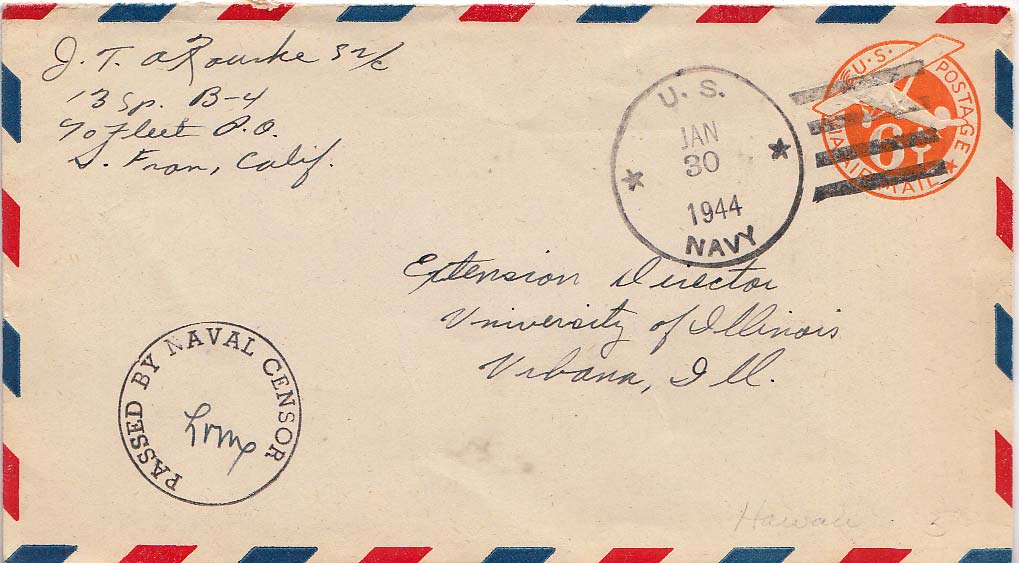 J. T. O'Rourke S2/c
13 Sp. B-4
c/o Fleet P.O.
S. Fran, Calif.
U. S.
JAN
30
1944
NAVY
U.S. POSTAGE
6¢
AIR MAIL
Extension Director
University of Illinois
Urbana, Ill.
PASSED BY NAVAL CENSOR
Hawaii